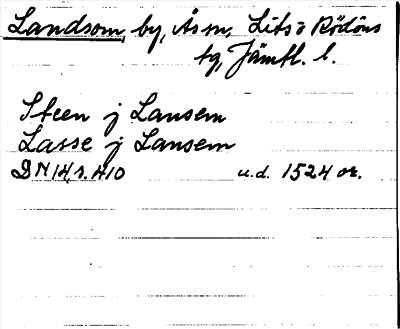 Landsom by, Ås sn, Lits o Rödöns
tg, Jämtl. l.
Steen j Lansem
Lasse j Lansem
DN 14, s. 410 u.d. 1524 or.